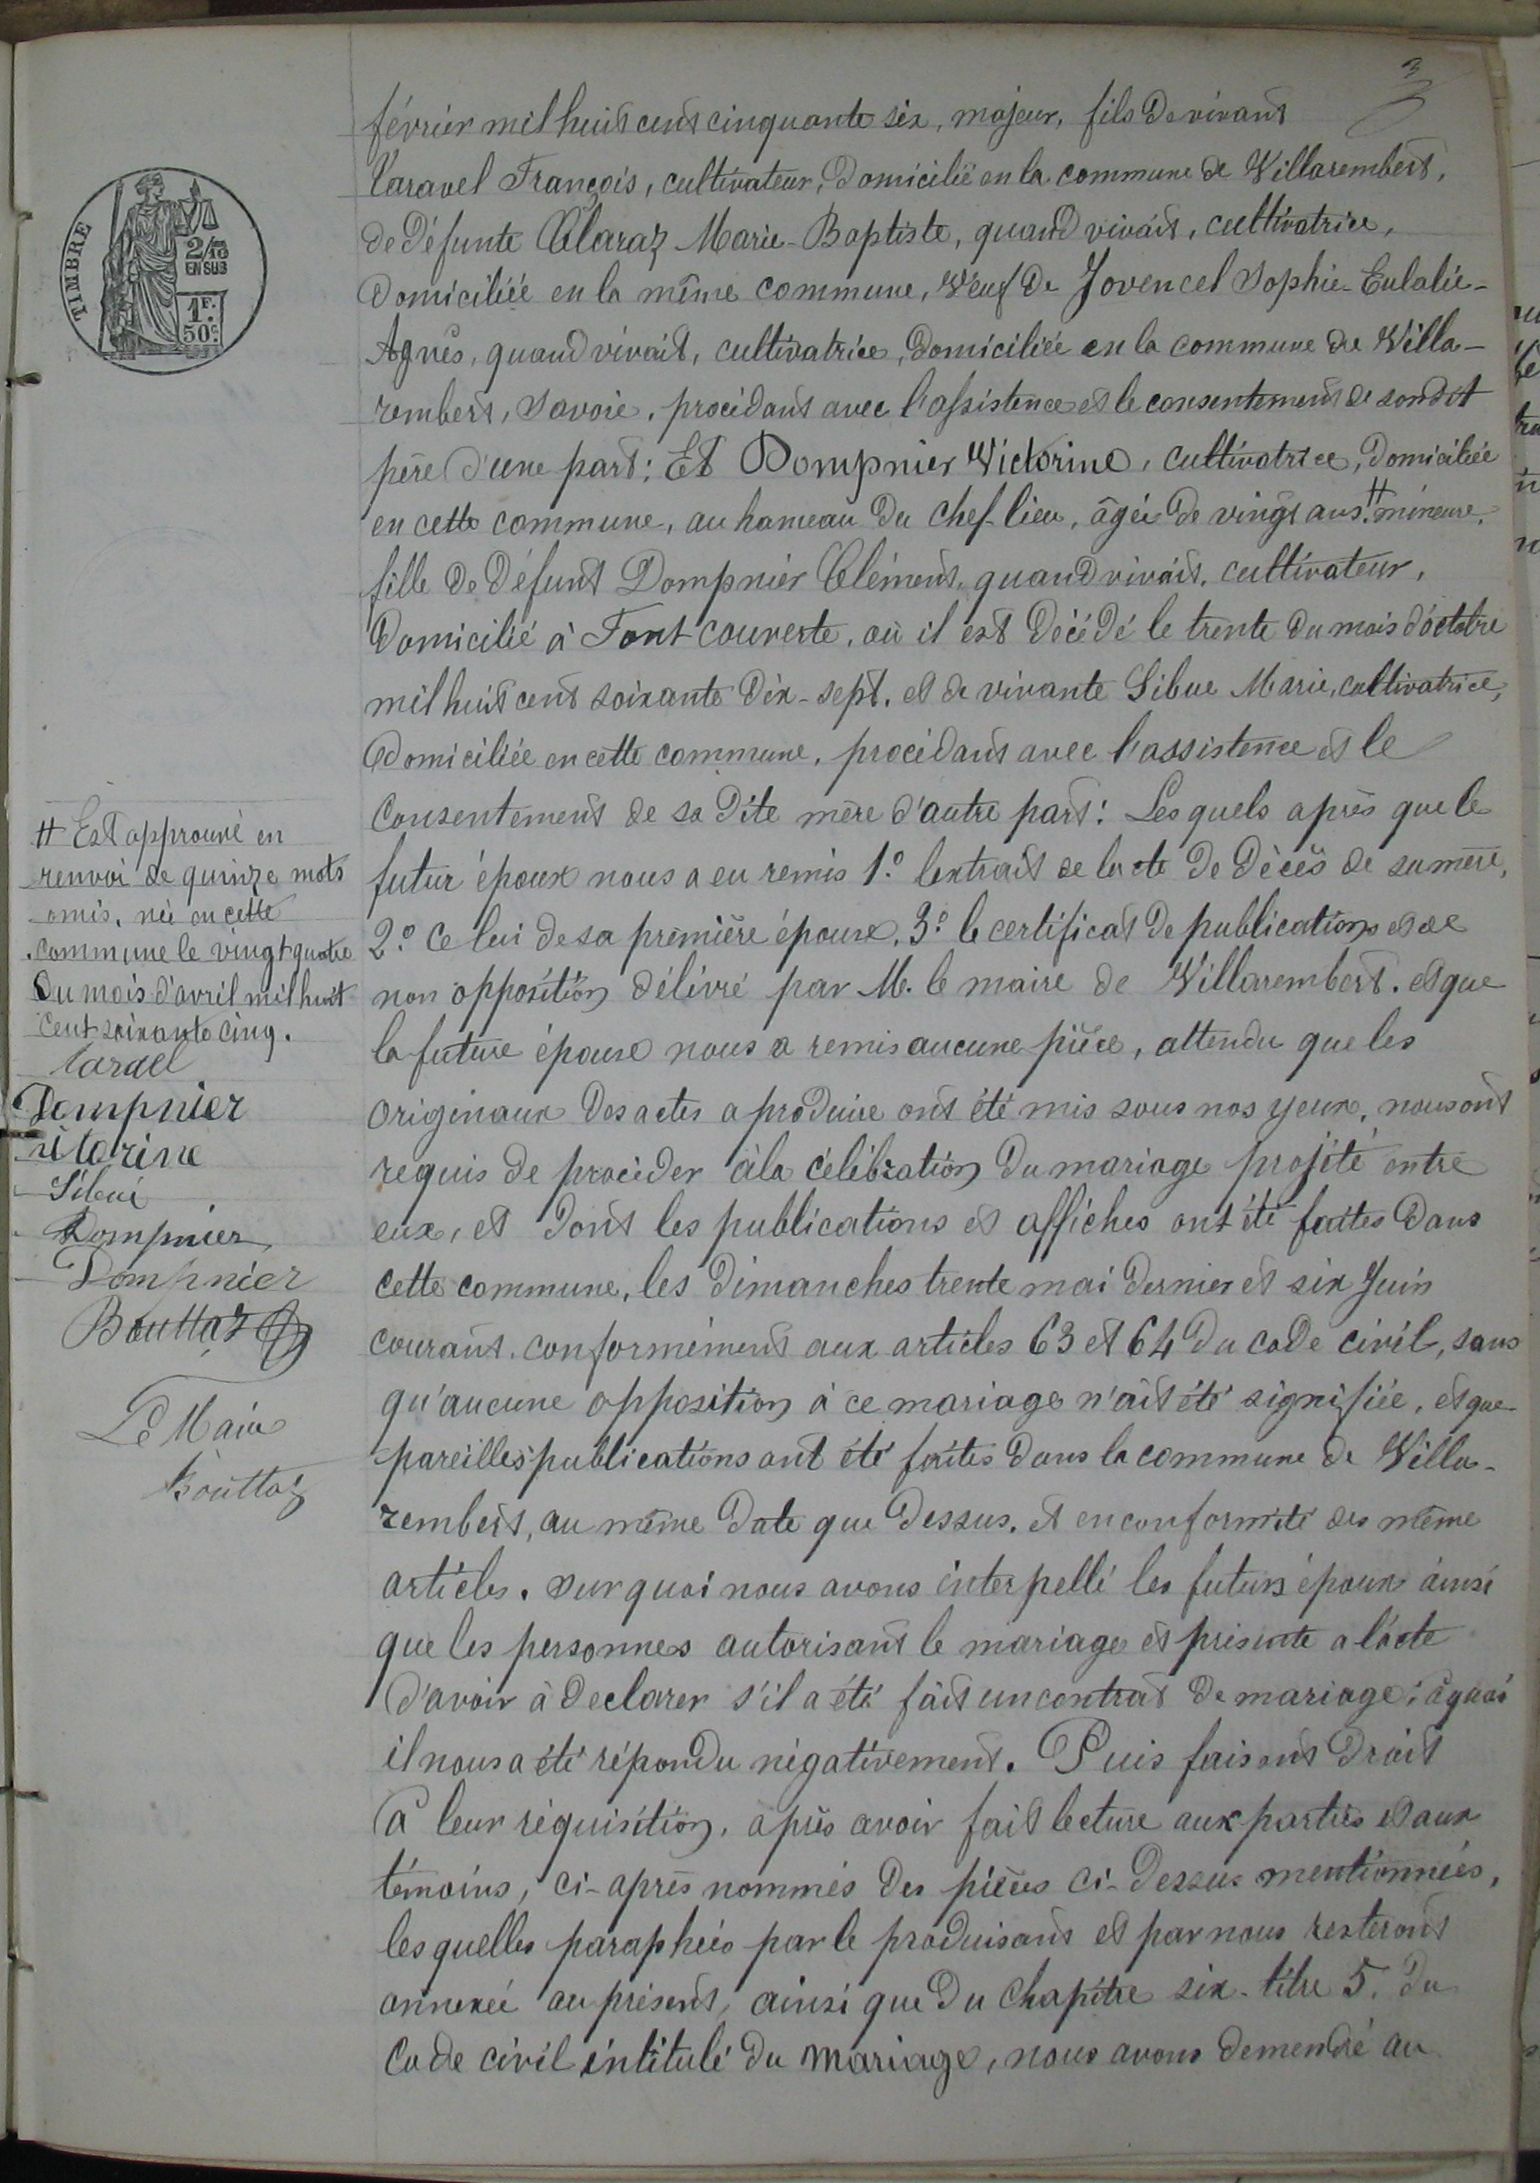 3
TIMBRE
2/10
EN SUS
1F.
50c.
février mil huit cent cinquante six, majeur, fils de vivant
Caravel François, cultivateur, domicilié en la commune de Villarembert,
de défunte Claraz Marie-Baptiste, quand vivait, cultivatrice,
domiciliée en la même commune, veuf de Jovencel Sophie-Eulalie-
Agnès, quand vivait, cultivatrice, domiciliée en la commune de Villa-
rembert, Savoie, procédant avec l'assistence et le consentement de son dit
père d'une part: Et Dompnier Victorine, cultivatrice, domiciliée
en cette commune, au hameau du chef-lieu, âgée de vingt ans # mineure,
fille de défunt Dompnier Clément, quand vivait, cultivateur,
domicilié à Fontcouverte, où il est décédé le trente du mois d'octobre
mil huit cent soixante dix-sept, et de vivante Sibue Marie, cultivatrice,
domiciliée en cette commune, procédant avec l'assistence et le
consentement de sa dite mère d'autre part: Lesquels après que le
futur époux nous a eu remis 1.° l'extrait de l'acte de décès de sa mère,
2.° celui de sa première épouse, 3.° le certificat de publications et de
non opposition délivré par M. le maire de Villarembert. et que
la future épouse nous a remis aucune pièce, attendu que les
originaux des actes a produire ont été mis sous nos yeux, nous ont
requis de procéder à la célébration du mariage projeté entre
eux, et dont les publications et affiches ont été faites dans
cette commune, les dimanches trente mai dernier et six Juin
courant, conformément aux articles 63 et 64 du code civil, sans
qu'aucune opposition à ce mariage n'ait été signifiée, et que
pareilles publications ont été faites dans la commune de Villa-
rembert, au même date que dessus, et en conformité des même
articles. Sur quoi nous avons interpellé les futurs époux ainsi
que les personnes autorisant le mariage et présente a l'acte
d'avoir à declarer s'il a été fait un contrat de mariage; à quoi
il nous a été répondu négativement. Puis faisant droit
à leur réquisition, après avoir fait lecture aux parties et aux
témoins, ci-après nommés des pièces ci-dessus mentionnées,
lesquelles paraphées par le produisant et par nous resteront
annexée au présent, ainsi que du Chapitre six-titre 5. du
Code civil intitulé du mariage, nous avons demendé au
# Est approuvé en
renvoi de quinze mots
omis. née en cette
commune le vingt-quatre
du mois d'avril mil huit
cent soixante cinq.
Caravel
Dompnier
vitorine
Sibué
Dompnier
Dompnier
Bouttaz
Le Maire
Bouttaz